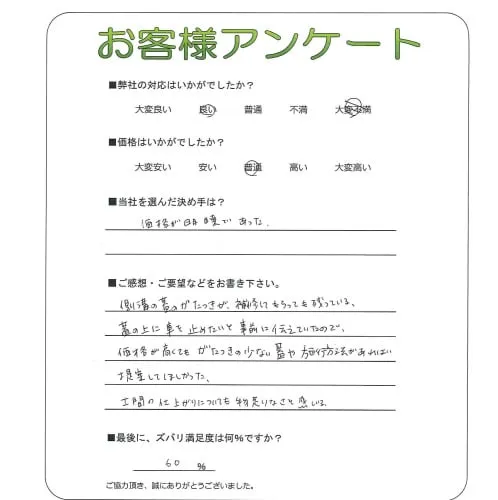 お客様アンケート
■弊社の対応はいかがでしたか？
大変良い 良い 普通 不満 大変不満
■価格はいかがでしたか？
大変安い 安い 普通 高い 大変高い
■当社を選んだ決め手は？
価格が明瞭であった。
■ご感想・ご要望などをお書き下さい。
側溝の蓋のがたつきが、補修してもらっても残っている。
蓋の上に車を止めたいと事前に伝えていたので、
価格が高くてもがたつきの少ない蓋や施行方法があれば
提案してほしかった。
土間の仕上がりについても物足りなさを感じる。
■最後に、ズバリ満足度は何％ですか？
60 %
ご協力頂き、誠にありがとうございました。